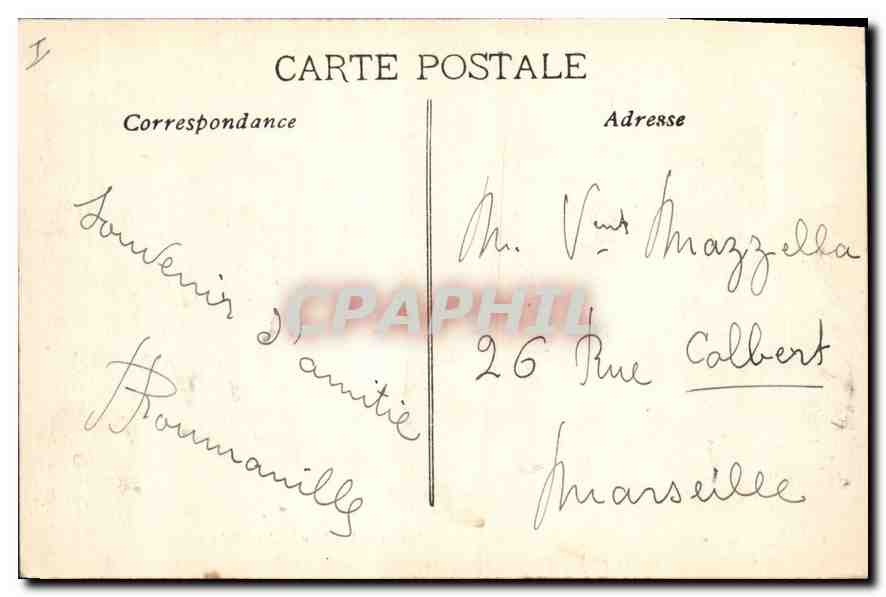 I
CARTE POSTALE
Correspondance
Souvenir
d'amitié
HRoumanille
Adresse
M. Vent Mazzella
26 Rue Colbert
Marseille
CPAPHIL